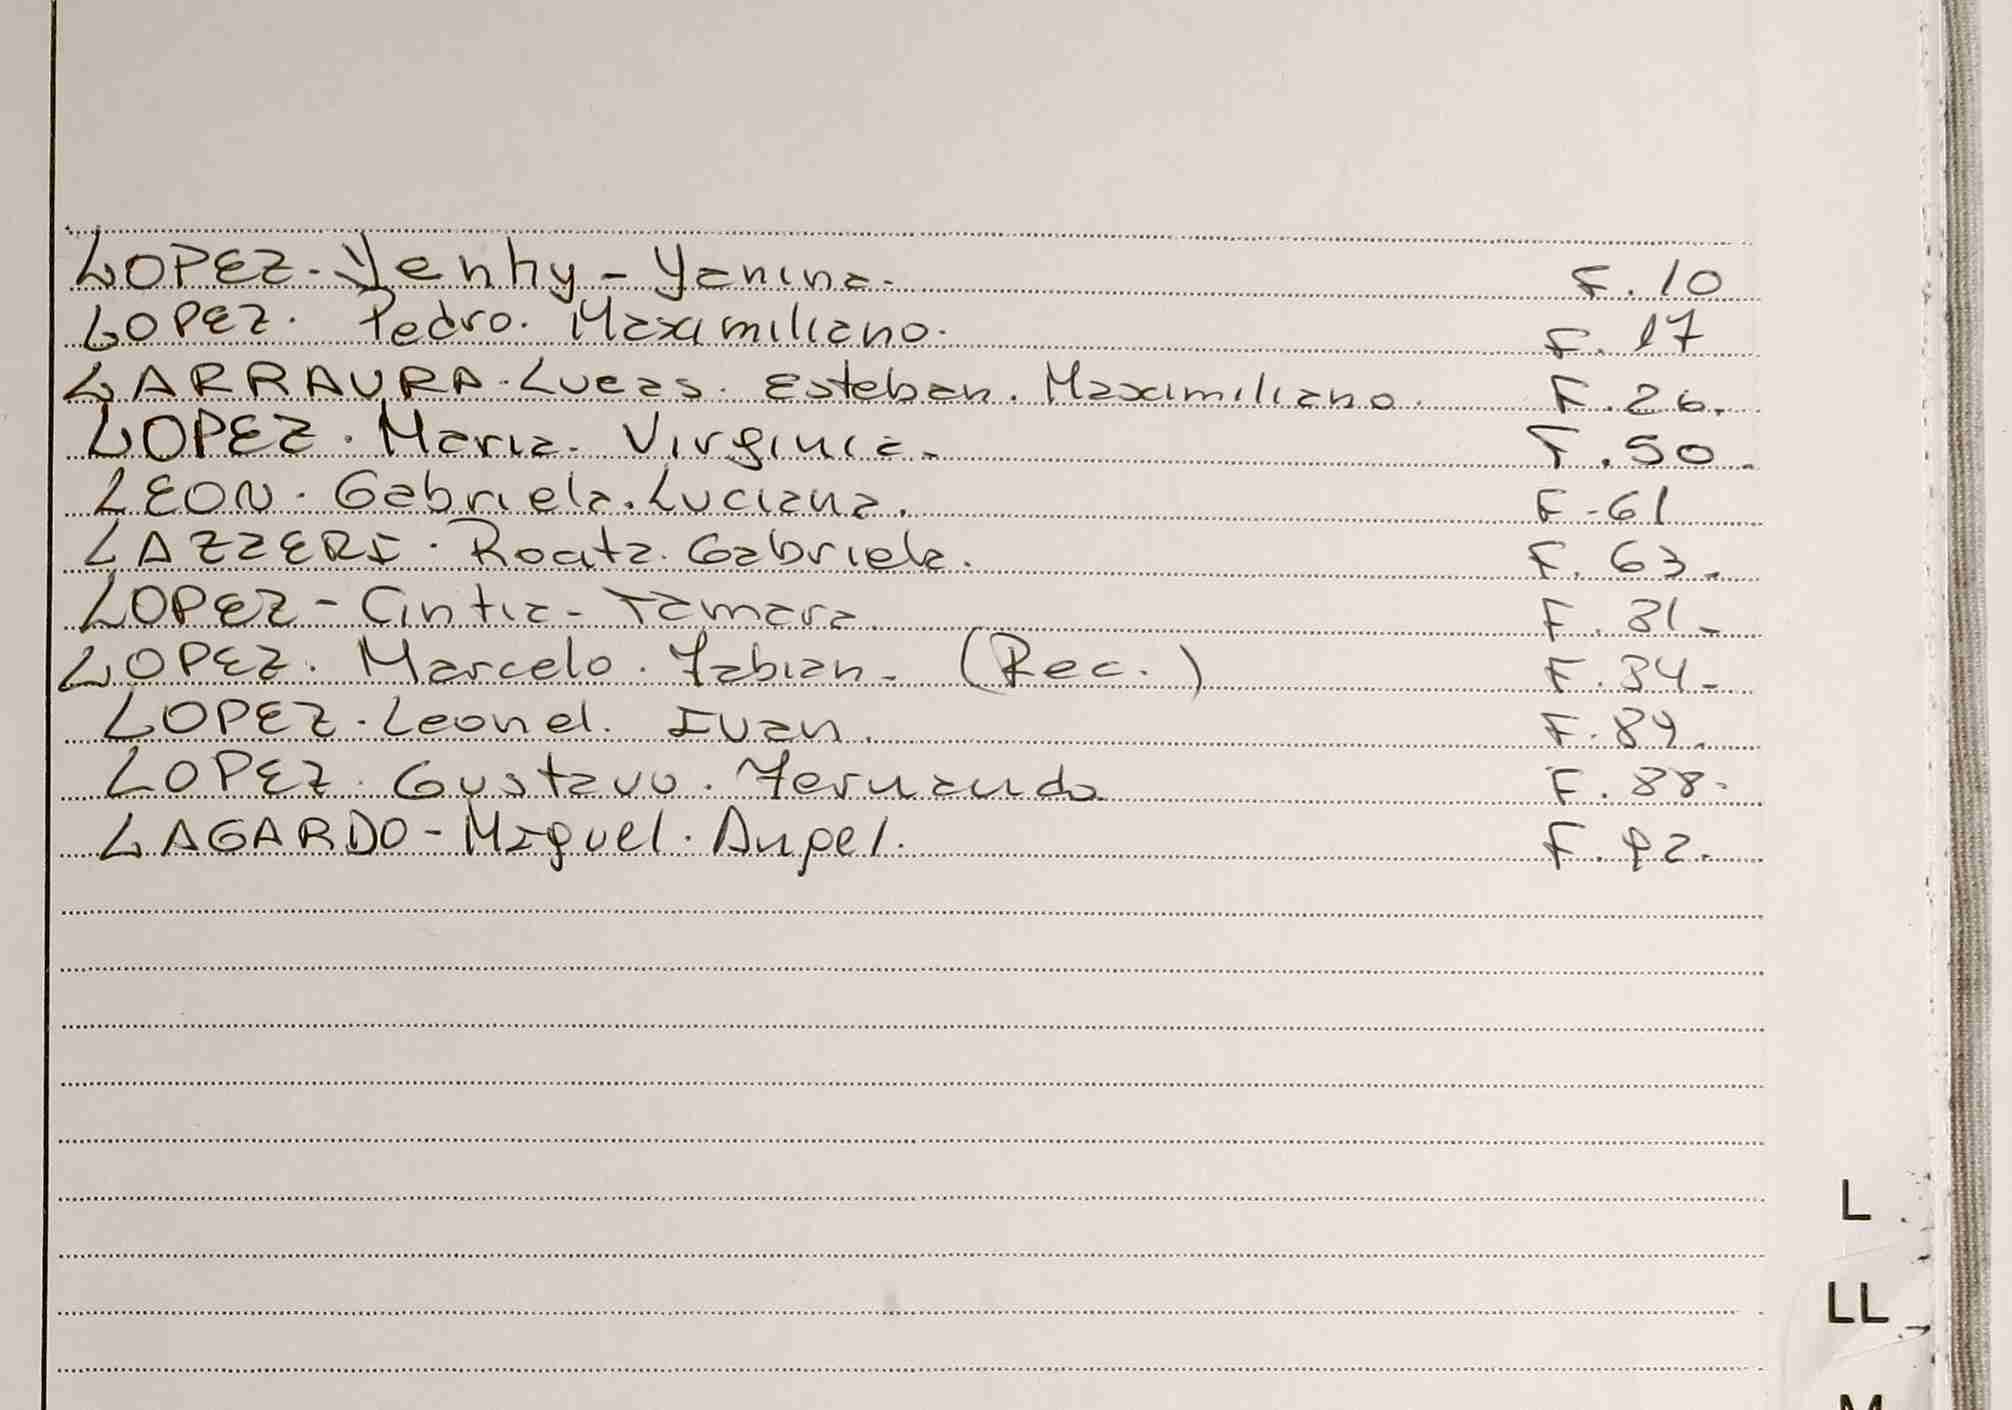 LOPEZ. Yenhy - Yanina. F. 10
LOPEZ. Pedro. Maximiliano. F. 17
LARRAURA. Lucas. Esteban. Maximiliano. F. 26.
LOPEZ. Maria. Virginia. F. 50.
LEON. Gabriela. Luciana. F. 61
LAZZERI. Gabriela. F. 63.
LOPEZ - Cintia - Tamara. F. 81.
LOPEZ. Marcelo. Fabian. (Rec.) F. 84.
LOPEZ. Leonel. Ivan. F. 89.
LOPEZ. Gustavo. Fernando F. 88.
LAGARDO - Miguel. Angel. F. 92.
L
LL
M